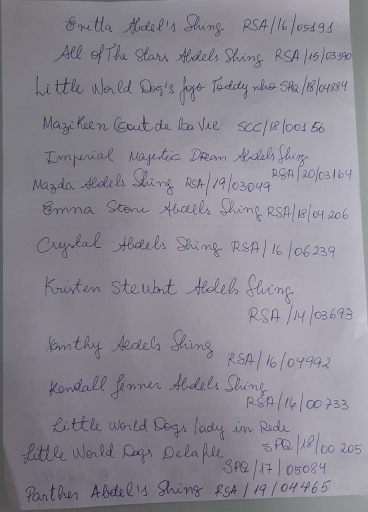 Britta Abdel's Shing RSA/16/05191
All of The Stars Abdels Shing RSA/15/03390
Little World Dog's Jojo Toddynho SPQ/18/04884
Mazikeen Gout de La Vie SCC/18/00156
Imperial Majestic Dream Abdels Shing
RSA/20/03164
Mazda Abdels Shing RSA/19/03049
Emma Stone Abdells Shing RSA/18/04206
Crystal Abdels Shing RSA/16/06239
Kristen Stewart Abdels Shing
RSA/14/03693
Xanthy Abdels Shing
RSA/16/04992
Kendall Jenner Abdels Shing
RSA/16/00733
Little World Dogs Lady in Rede
SPQ/18/00205
Little World Dogs Delafle
SPQ/17/05084
Parther Abdel's Shing RSA/19/04465